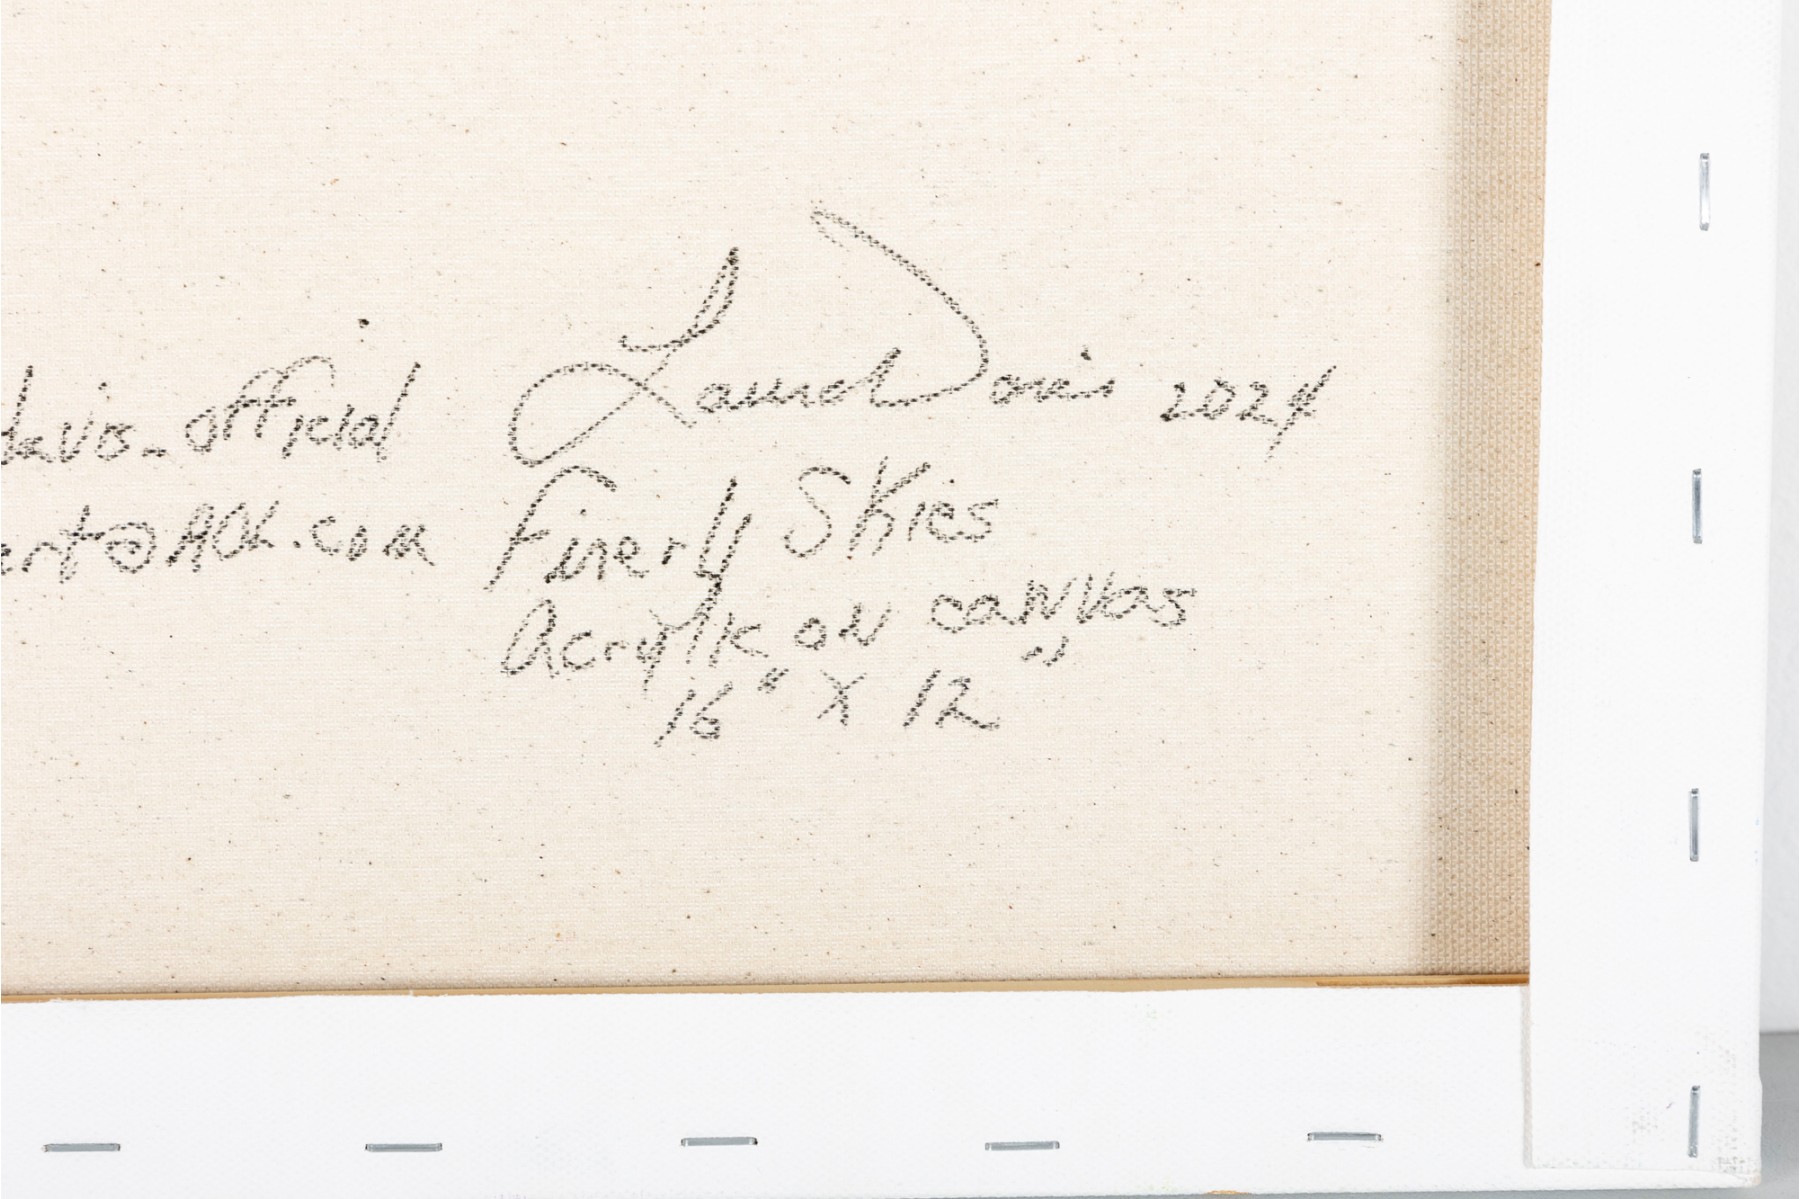 davis_official
ert@AOL.com
Laurel Davis 2024
Finery Skies
Acrylic on canvas
16" x 12"